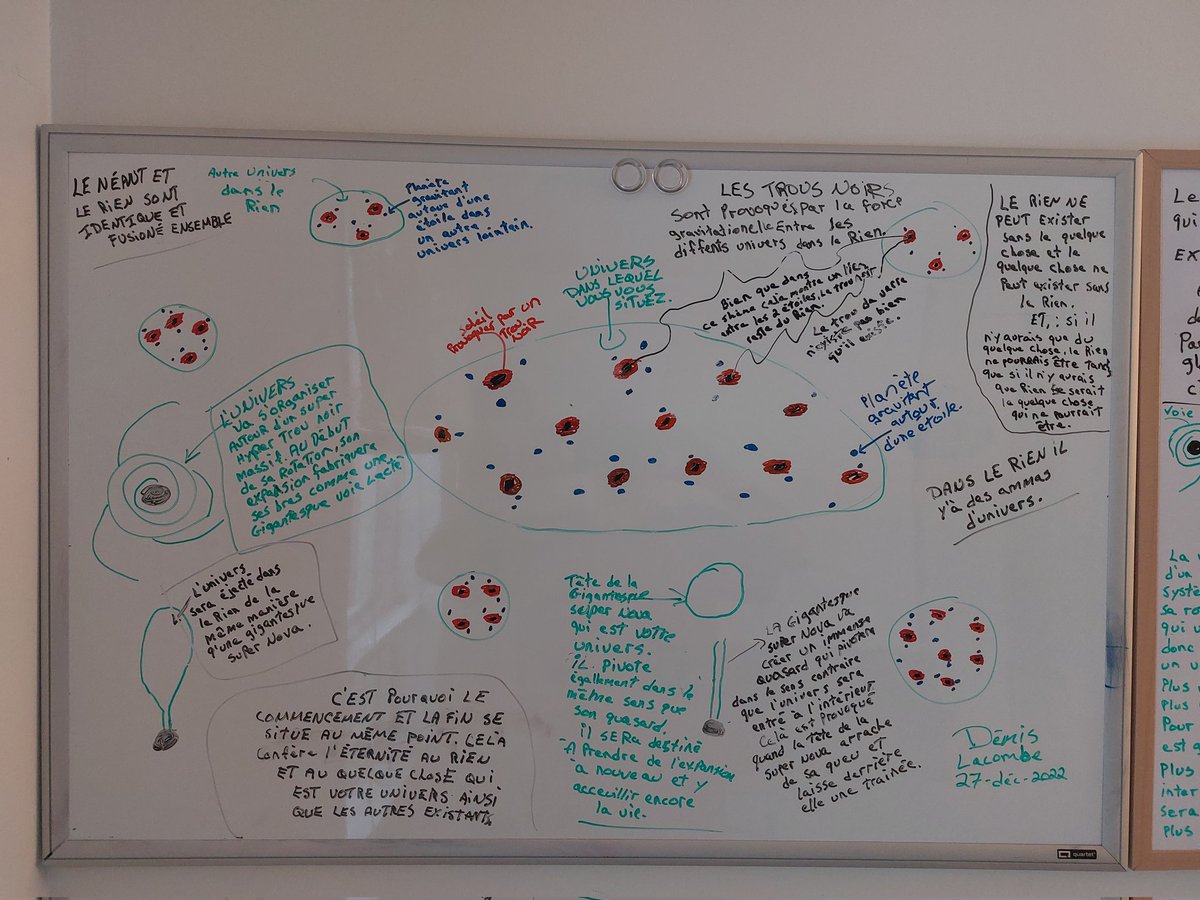 LE NÉANT ET
LE RIEN SONT
IDENTIQUE ET
FUSIONÉ ENSEMBLE
Autre Univers
dans le
Rien
Planète
gravitant
autour d'une
étoile dans
un autre
univers lointain.
LES TROUS NOIRS
sont Provoqués par la force
gravitationelle Entre les
diffents univers dans le Rien.
LE RIEN NE
PEUT EXISTER
sans le quelque
chose et le
quelque chose ne
Peut exister sans
le Rien.
ET, : si il
n'y aurais que du
quelque chose, le Rien
ne pourrais être tandis
que si il n'y aurais
que Rien se serait
le quelque chose
qui ne pourrait
être.
UNIVERS
DANS LEQUEL
VOUS VOUS
SITUEZ.
Bien que dans
ce shéma cela montre un lien
entre les 2 étoiles. Le trou n'est
reste du Rien.
Le trou de verre
n'existe pas bien
qu'il existe.
soleil
Provoquer par un
TROU
NOIR
Planète
gravitant
autour
d'une étoile.
L'UNIVERS
VA S'ORGANISER
AUTOUR D'UN SUPER
Hyper Trou noir
massif. AU DÉBUT
de sa Rotation, son
expansion fabriquera
ses bras comme une
Gigantesque voie Lactée
DANS LE RIEN IL
y'a des ammas
d'univers.
L'univers
sera éjecté dans
le Rien de la
même manière
qu'une gigantesque
super Nova.
Tête de la
Gigantesque
super Nova
qui est votre
univers.
IL Pivote
également dans le
même sens que
son quasard.
il SERA destiné
A Prendre de l'expansion
à nouveau et y
acceuillir encore
la vie.
LA Gigantesque
super Nova va
créer un immense
quasard qui pivotera
dans le sens contraire
que l'univers sera
entré à l'intérieur
Cela est Provoqué
quand la tête de la
super Nova arrache
de sa queu et
laisse derrière
elle une trainée.
C'EST POURQUOI LE
COMMENCEMENT ET LA FIN SE
SITUE AU MÊME POINT. CELA
Confère l'ÉTERNITÉ AU RIEN
ET AU QUELQUE CHOSE QUI
EST VOTRE UNIVERS AINSI
QUE LES AUTRES EXISTANTS.
Dénis
Lacombe
27-déc-2022
quartet
Le
qui
EX
Voie
La
d'un
systè
sa ro
qui
donc
un u
Plus
Plus
Pour
est q
Plus
inter
sera
Plus